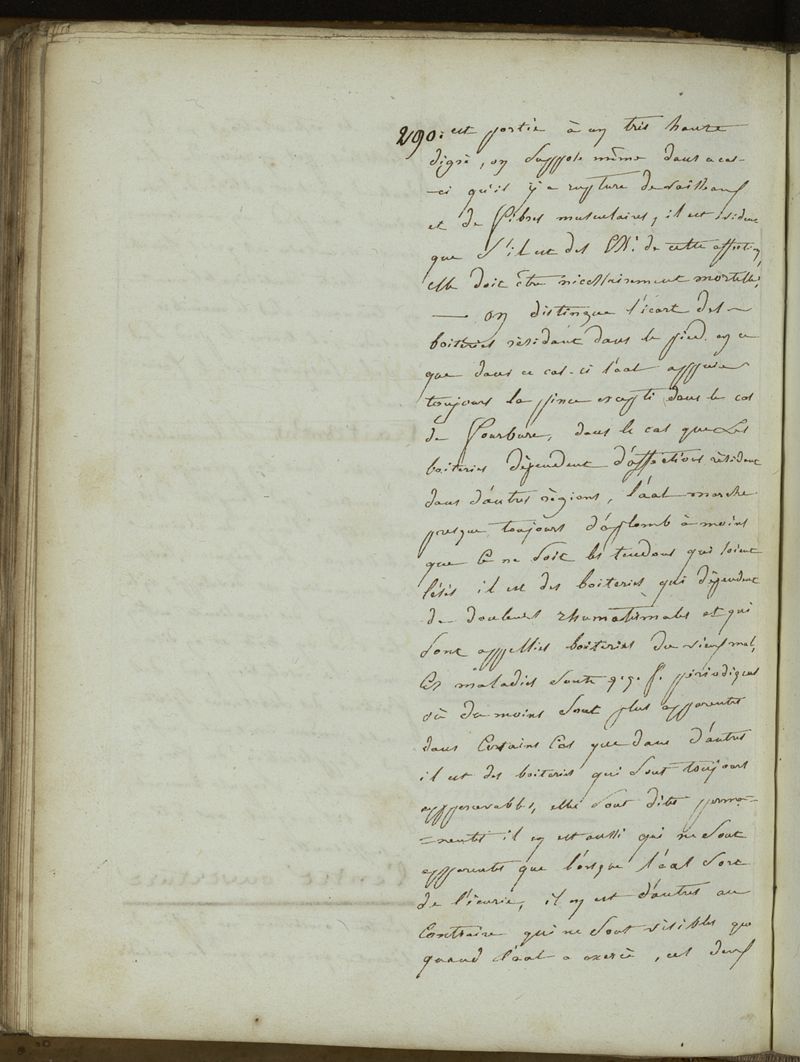 290. est portée à un tres haute
digré, on suppose même dans ce cas-
-ci qu'il y a rupture de vaisseaux
et de fibres musculaires, il est évident
que s'il est des de cette affection,
elle doit être nécessairement mortelle,
— on distingue l'écart des —
boiteries résidant dans le pied en ce
que dans ce cas-ci l'aal appuie
toujours la pince excepté dans le cas
de fourbure, dans le cas que les
boiteries dépendent d'affections résident
dans d'autres régions, l'aal marche
presque toujours d'aplomb à moins
que ce ne soit les tendons qui soient
lésés il est des boiteries qui dépendent
de douleurs rhumatismales et qui
sont appellées boiteries du vieux mal,
Ces maladies sonte q.q. f. périodiques
où du moins sont plus apparentes
dans Certains Cas que dans d'autres
il est des boiteries qui sont toujours
appercevables, elle sont dites perma=
=nentes il en est aussi qui ne sont
apparentes que lorsque l'aal sort
de l'écurie, il en est d'autres au
Contraire qui ne sont visibles que
quand l'aal a exercé, ces deux